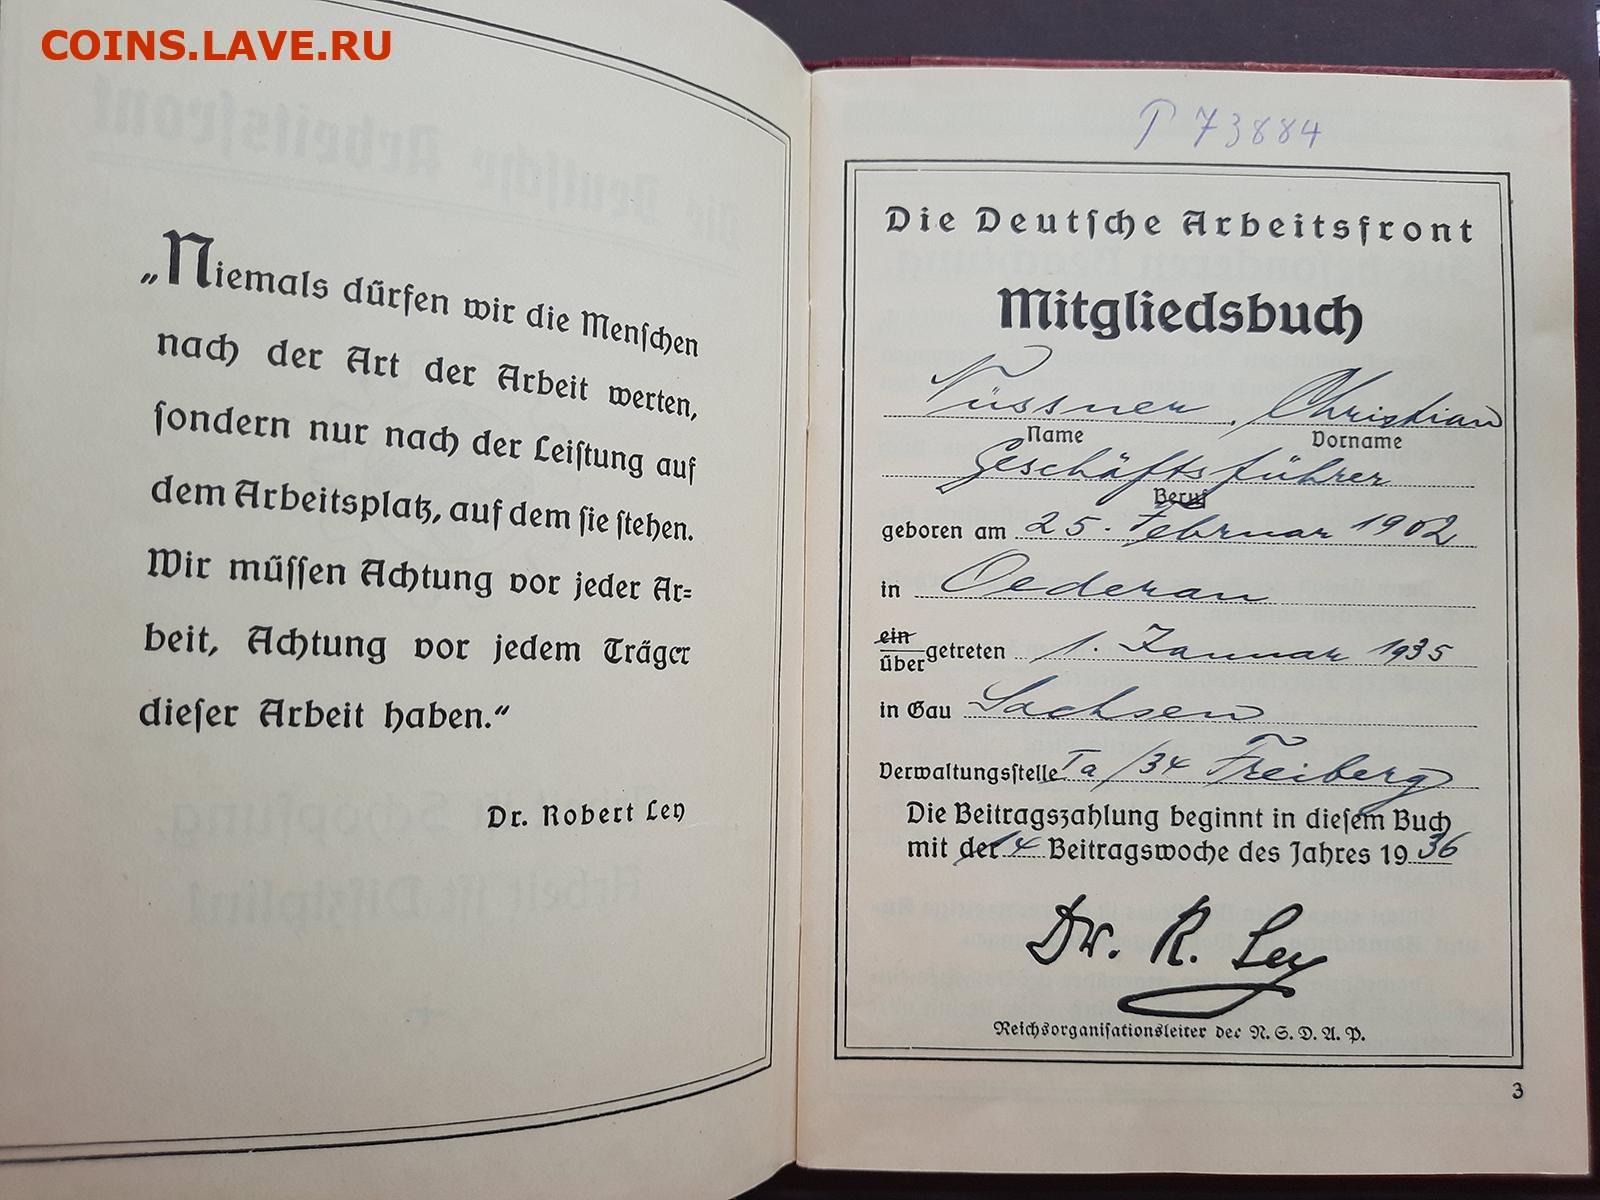 COINS.LAVE.RU
„Niemals dürfen wir die Menschen
nach der Art der Arbeit werten,
sondern nur nach der Leistung auf
dem Arbeitsplatz, auf dem sie stehen.
Wir müssen Achtung vor jeder Ar=
beit, Achtung vor jedem Träger
dieser Arbeit haben.“
Dr. Robert Ley
73884
Die Deutsche Arbeitsfront
Mitgliedsbuch
Christian
Name Vorname
Geschäftsführer
Beruf
geboren am 25. Februar 1902
in Oederan
ein
über getreten 1. Januar 1935
in Gau Sachsen
Verwaltungsstelle Ta/34 Freiberg
Die Beitragszahlung beginnt in diesem Buch
mit der 14 Beitragswoche des Jahres 1936
Dr. R. Ley
Reichsorganisationsleiter der N. S. D. A. P.
3